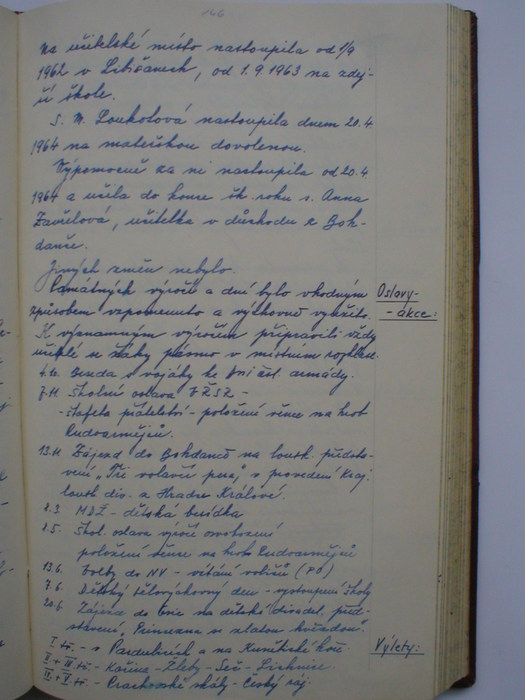 166
na učitelské místo nastoupila od 1/9
1962 v Libišanech, od 1.9.1963 na zdej-
ší škole.
S. M. Loukotová nastoupila dnem 20.4.
1964 na mateřskou dovolenou.
Výpomocně za ni nastoupila od 20.4.
1964 a učila do konce šk. roku s. Anna
Zavřelová, učitelka v důchodu z Boh-
danče.
Jiných změn nebylo.
Památných výročí a dní bylo vhodným
způsobem vzpomenuto a výchovně využito.
K významným výročím připravili vždy
učitelé a žáky pásmo v místním rozhlase.
Oslavy-
-akce:
Beseda s vojáky ke Dni čsl. armády.
7.11. Školní oslava VŘSR -
- štafeta přátelství - položení věnce na hrob
Rudoarmějců.
13.11. Zájezd do Bohdanče na loutk. předsta-
vení „Tři volavčí pera" v provedení Kraj.
loutk. div. z Hradce Králové.
8.3. MDŽ - dětská besídka
8.5. Škol. oslava výročí osvobození
položení věnce na hrob Rudoarmějců
Volby do NV - vítání voličů (PO)
7.6. Dětský tělovýchovný den - vystoupení školy
20.6. Zájezd do na dětské divadel. před-
stavení „Princezna se zlatou
Výlety:
I. tř. - v Pardubicích a na Kunětické hoře
II. + tř. - Kačina - Žleby - Seč - Lichnice
+ V. tř. - Prachovské skály - Český ráj